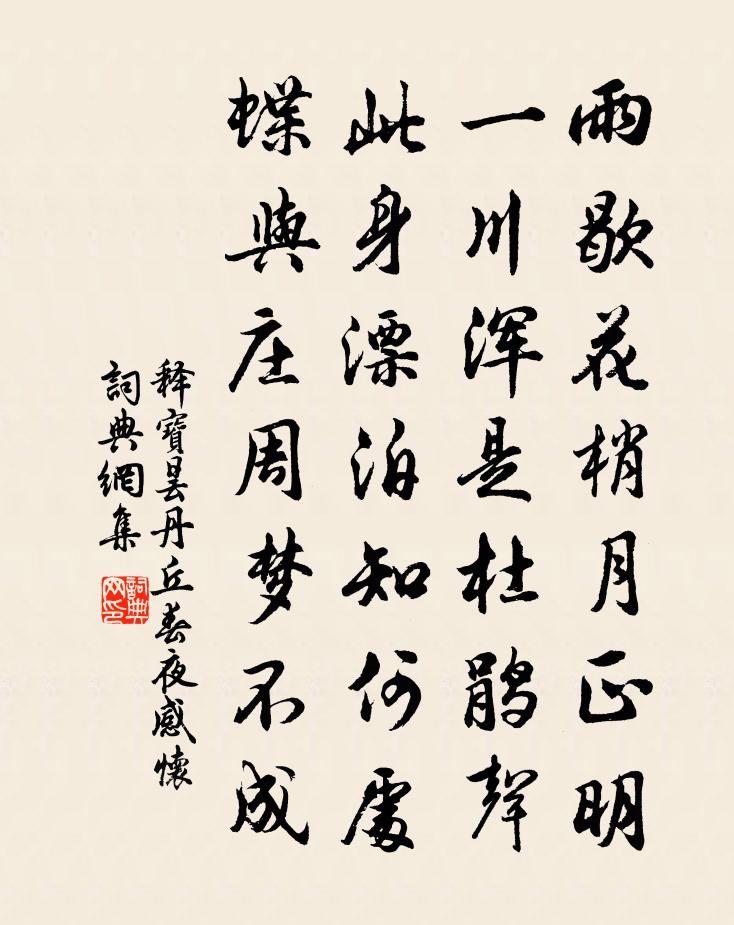 雨歇花梢月正明
一川浑是杜鹃聲
此身漂泊知何處
蝶與庄周梦不成
释寶曇丹丘春夜感懷
詞典網集
詞典網印